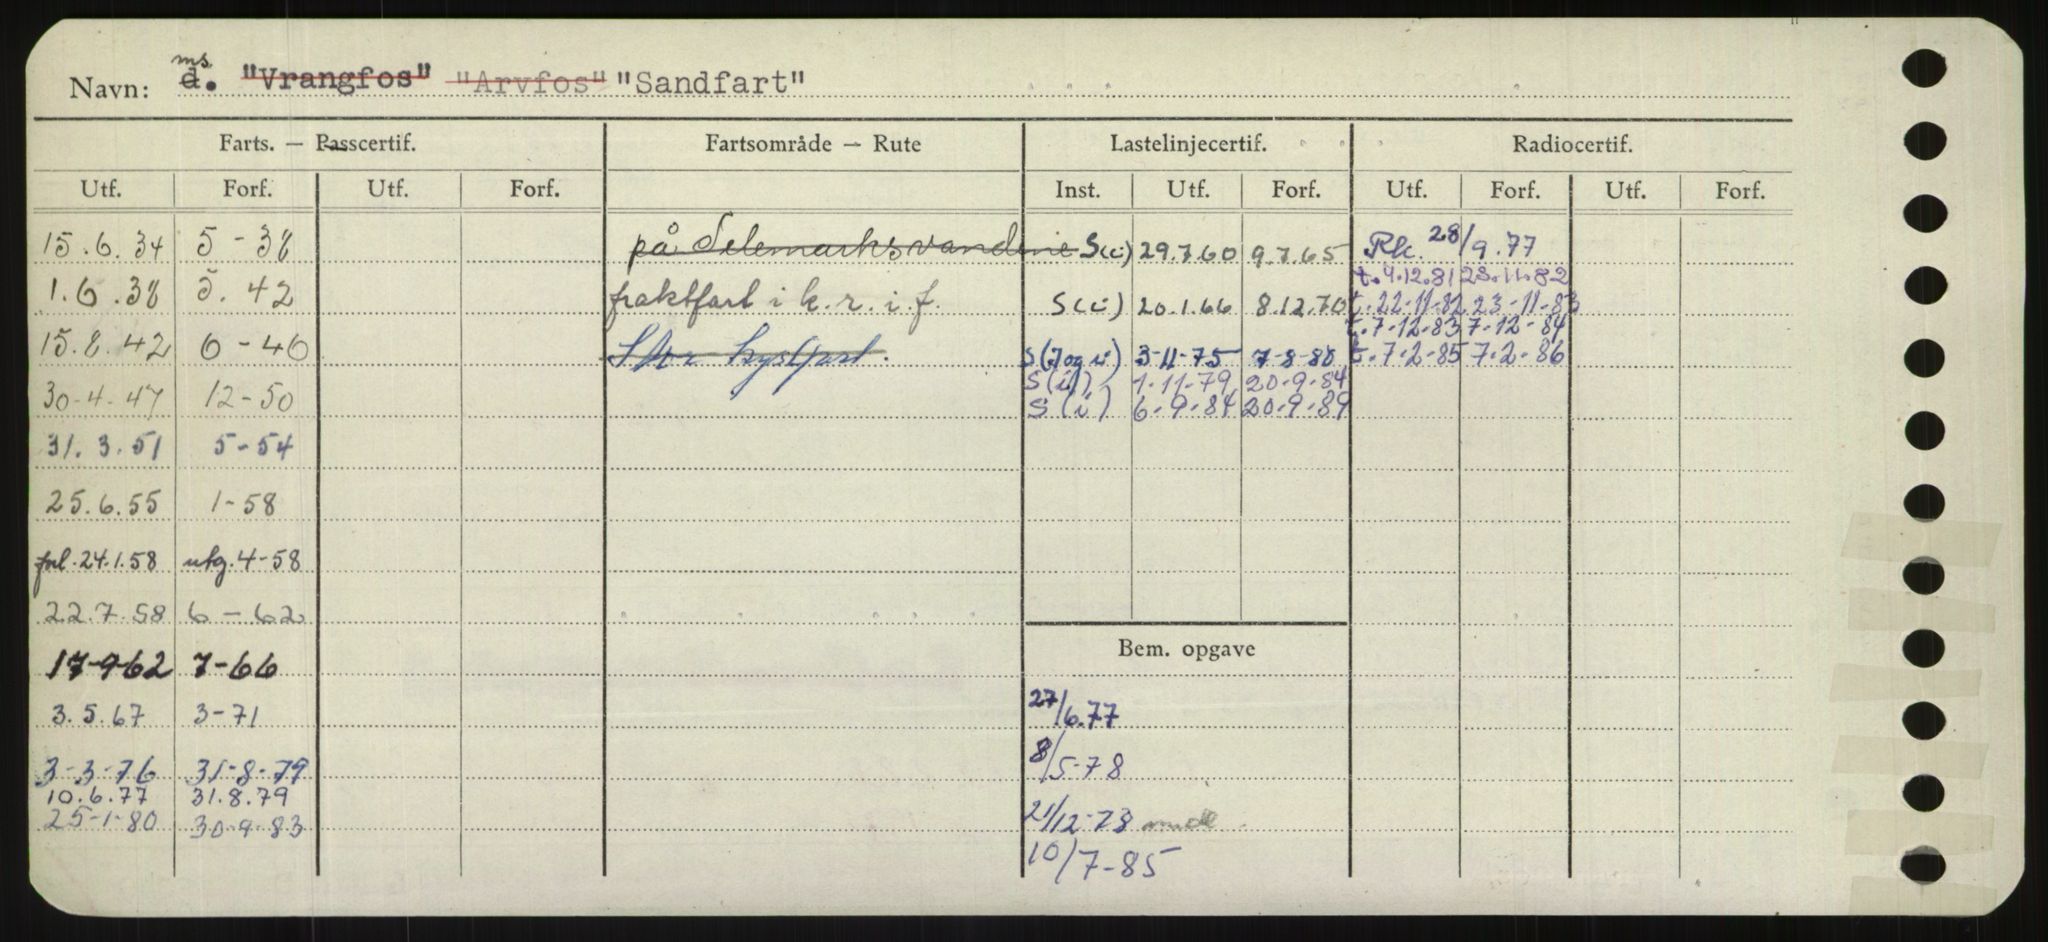 Navn: ms d. "Vrangfos" "Arvfos" "Sandfart"
Farts. — Passcertif. Fartsområde — Rute Lastelinjecertif. Radiocertif.
Utf. Forf. Utf. Forf. Inst. Utf. Forf. Utf. Forf. Utf. Forf.
15.6.34 5-38 på Telemarksvandene S(i) 29.7.60 9.7.65 Rk. 28/9.77
t.4.12.81 23.11.82
1.6.38 5.42 fraktfart i k.r.i.f. S(i) 20.1.66 8.12.70 t.22-11-82 23-11-83
t.7-12-83 7-12-84
15.8.42 6-46 Stor kystfart. S(J og i) 3-11-75 7-8-80 t.7-2-85 7-2-86
S(i) 1-11-79 20-9-84
30-4-47 12-50 S(i) 6-9-84 20-9-89
31.3.51 5-54
25.6.55 1-58
forl.24.1.58 utg.4-58
22.7.58 6-62
Bem. opgave
17-9-62 7-66
3.5.67 3-71 27/6.77
3-3-76 31-8-79 8/5-78
10.6.77 31.8.79
25-1-80 30-9-83 21/12-78
10/7-85